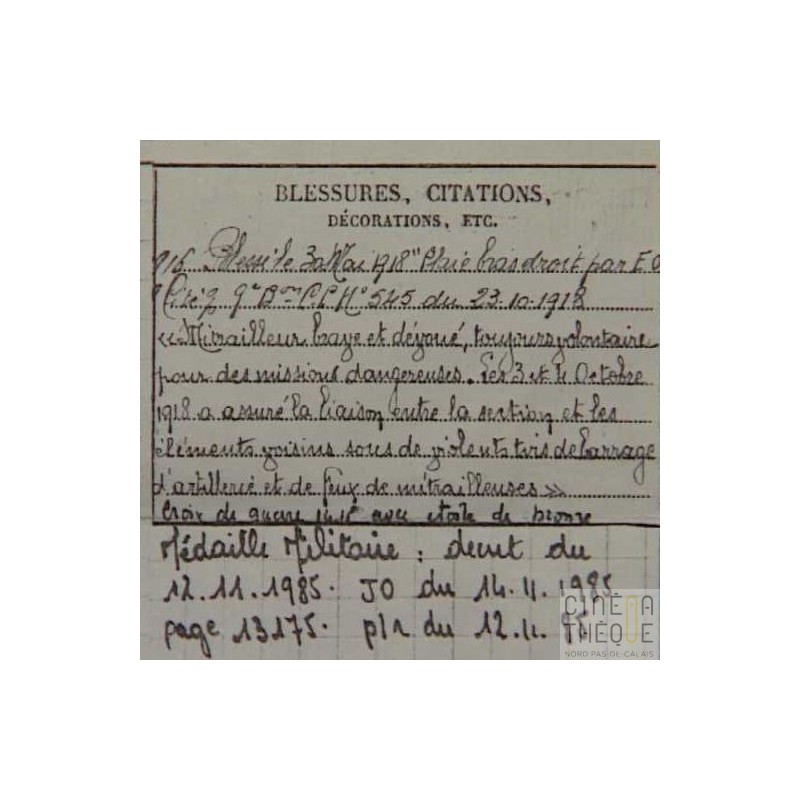 BLESSURES, CITATIONS,
DÉCORATIONS, ETC.
Blessé le 30 Mai 1918 "Plaie bras droit par E O
Cité q. Gal Bon C.P. No 545 du 23-10-1918
« Mitrailleur brave et dévoué, toujours volontaire
pour des missions dangereuses. Les 3 et 4 Octobre
1918 a assuré la liaison entre la section et les
éléments voisins sous de violents tirs de barrage
d'artillerie et de feux de mitrailleuses »
Croix de guerre avec étoile de bronze
Médaille Militaire : decret du
12.11.1985. JO du 14.11.1985
page 13175. p/r du 12.11.85
CINÉMA
THÈQUE
NORD PAS-DE-CALAIS